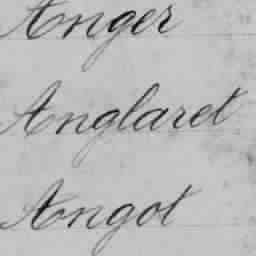 Anger
Anglaret
Angot